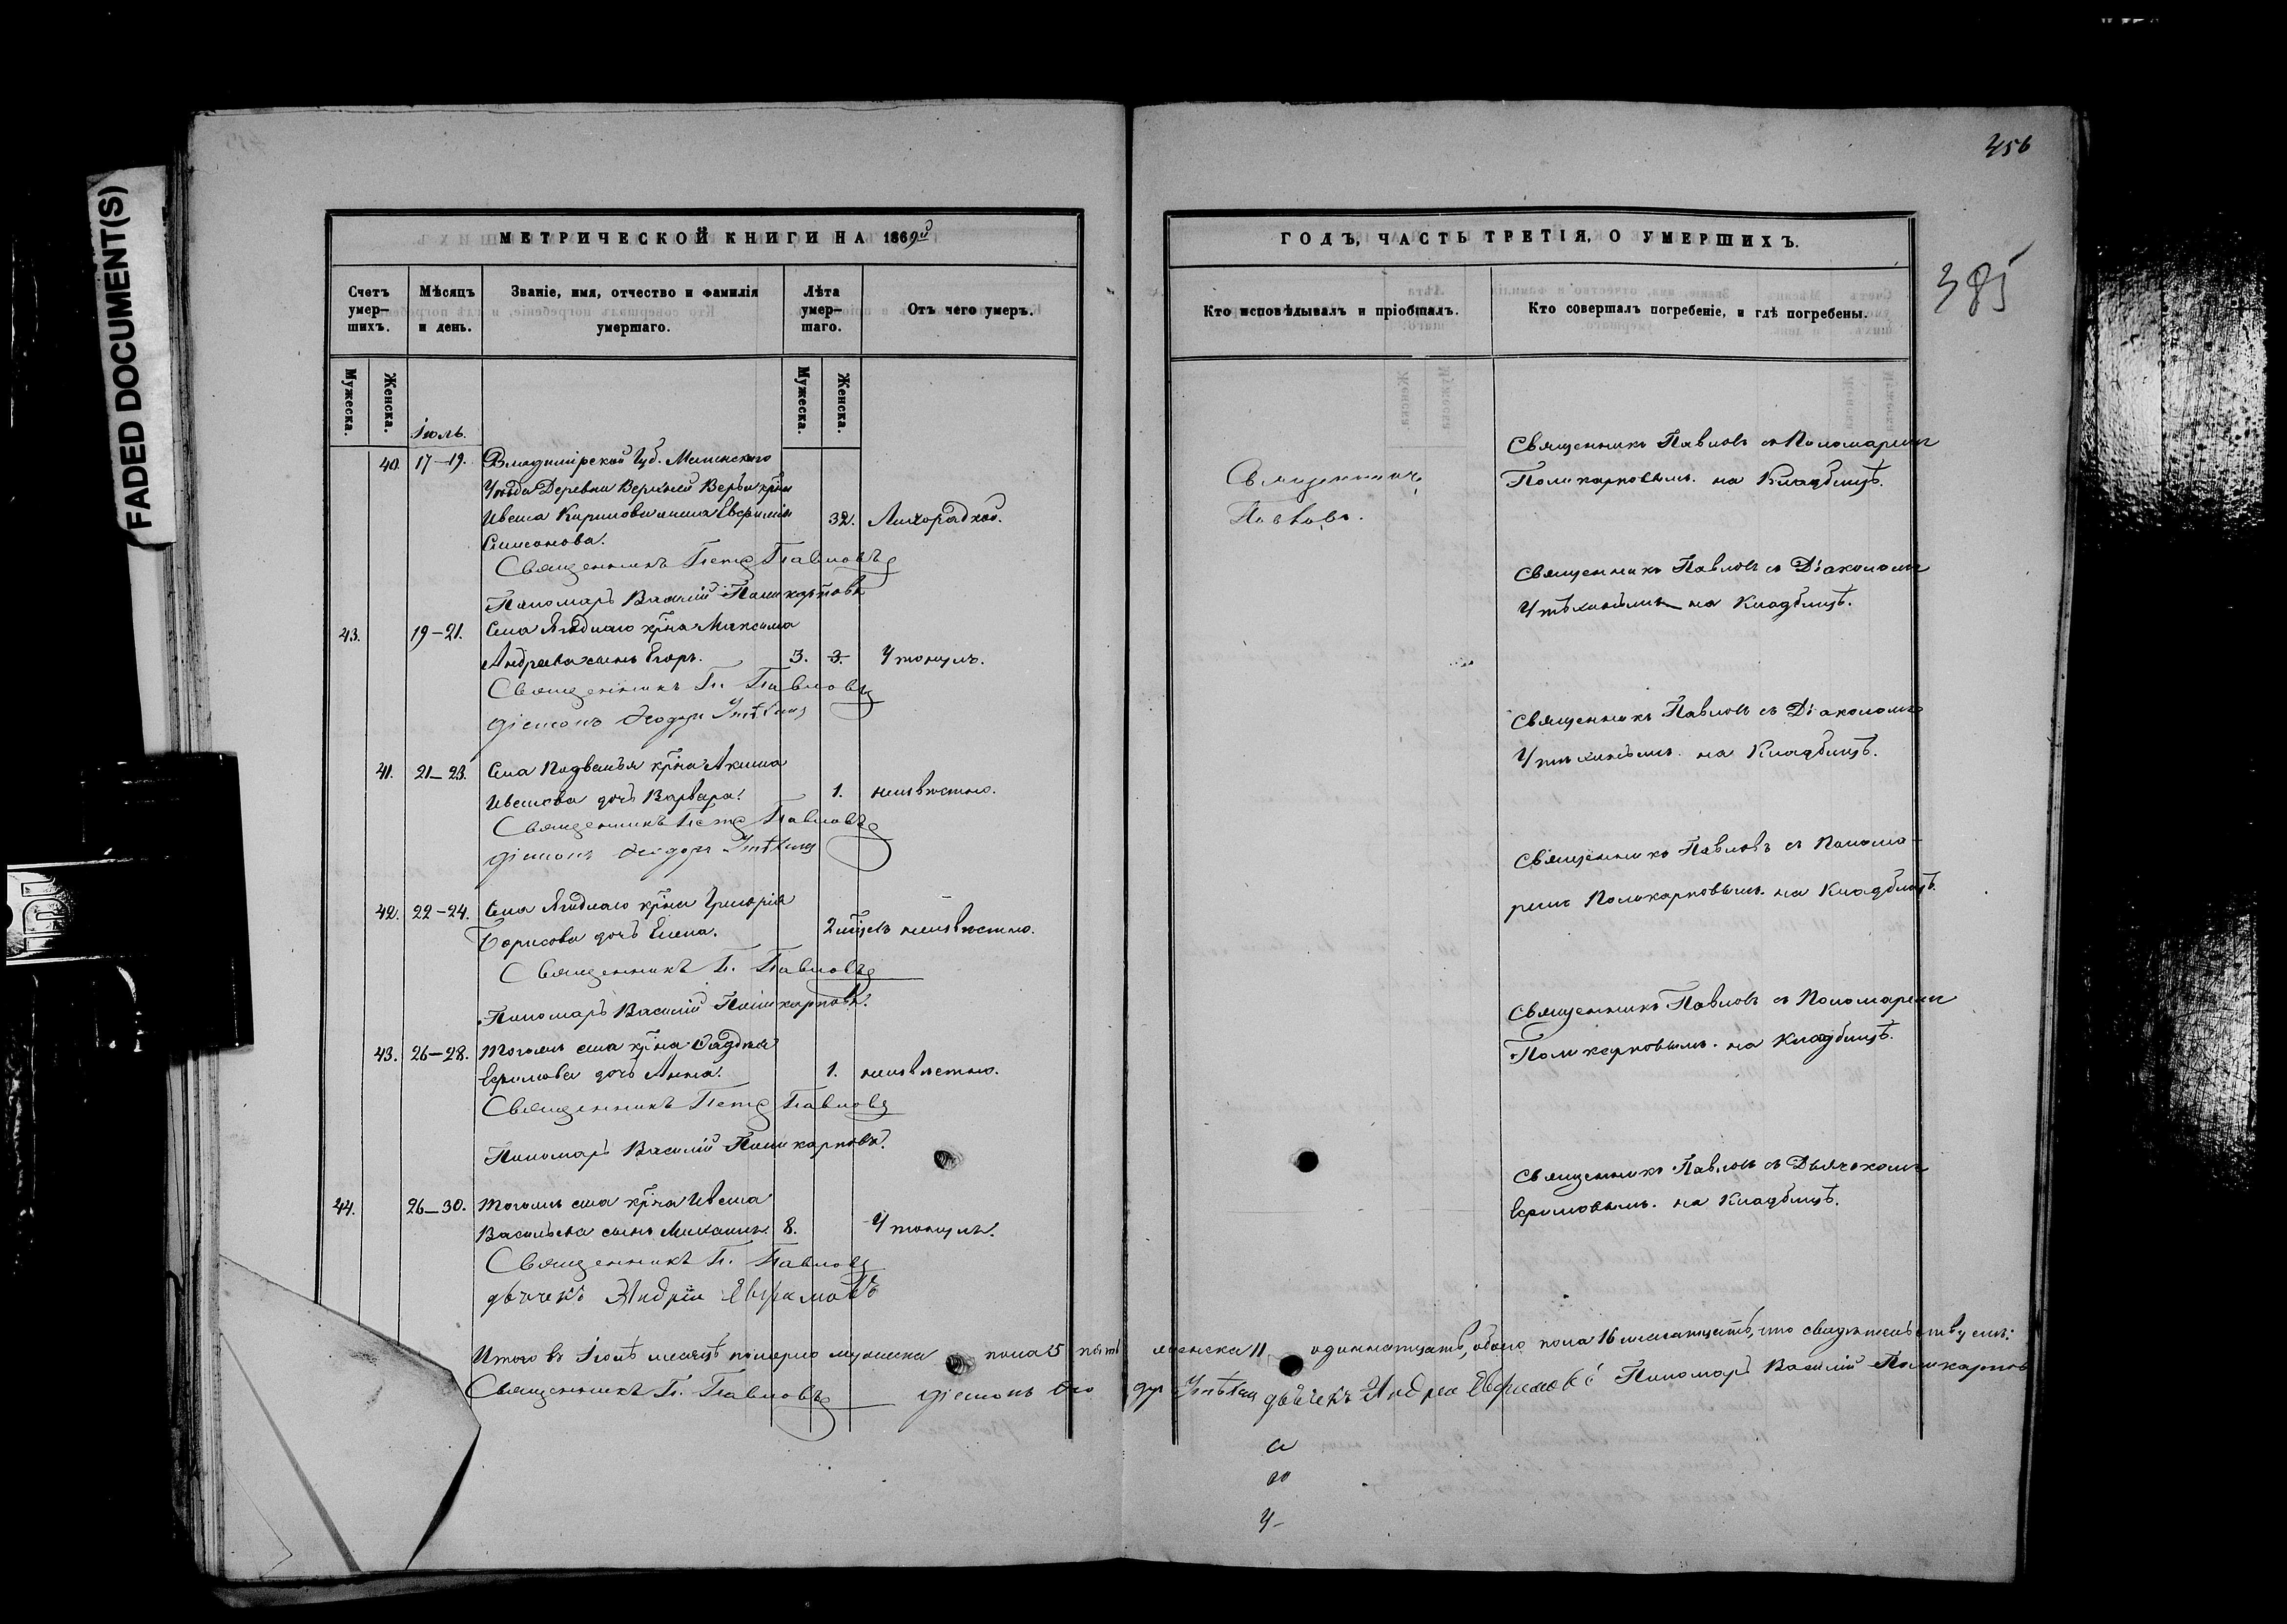 FADED DOCUMENT(S)
456
385
МЕТРИЧЕСКОЙ КНИГИ НА 1869й
ГОДЪ, ЧАСТЬ ТРЕТІЯ, О УМЕРШИХЪ.
Счетъ умер-шихъ.
Мѣсяцъ и день.
Званіе, имя, отчество и фамилія умершаго.
Лѣта умер-шаго.
Отъ чего умеръ.
Кто исповѣдывалъ и пріобщалъ.
Кто совершалъ погребеніе, и гдѣ погребены.
Мужеска.
Женска.
Мужеска.
Женска.
Іюль.
40. 17-19. Владимірской Губ.
Уѣзда Деревни Верхней Вереи крѣна
Ивана Кирилова жена Евфимія 32. Лихорадкой.
Симонова.
Священникъ Петръ Павловъ
Пономарь Василій Поликарповъ
Священникъ
Павловъ.
Священникъ Павловъ съ Пономаремъ
Поликарповымъ. на Кладбищѣ.
43. 19-21. Села Ягоднаго крѣна Максима
Андреева сынъ Егоръ. 3. 3. Утонулъ.
Священникъ П. Павловъ
діаконъ Ѳеодоръ Утѣхинъ
Священникъ Павловъ съ Діакономъ
Утѣхинымъ на Кладбищѣ.
41. 21-23. Села Подвалья крѣна Акима
Иванова дочь Варвара. 1. неизвѣстно.
Священникъ Петръ Павловъ
діаконъ Ѳеодоръ Утѣхинъ
Священникъ Павловъ съ Діакономъ
Утѣхинымъ. на Кладбищѣ.
42. 22-24. Села Ягоднаго крѣна Григорія
Борисова дочь Елена. 2 неизвѣстно.
Священникъ П. Павловъ
Пономарь Василій Поликарповъ.
Священникъ Павловъ съ Понома-
ремъ Поликарповымъ. на Кладбищѣ.
43. 26-28. Тогожъ села крѣна Фаддея
дочь Анна. 1. неизвѣстно.
Священникъ Петръ Павловъ
Пономарь Василій Поликарповъ.
Священникъ Павловъ съ Пономаремъ
Поликарповымъ. на Кладбищѣ.
44. 26-30. Тогожъ села крѣна Ивана
Васильева сынъ Михаилъ. 8. Утонулъ.
Священникъ П. Павловъ
дьячекъ Андрей Ефримовъ
Священникъ Павловъ съ Дьячекомъ
Ефримовымъ. на Кладбищѣ.
Итого въ Іюлѣ мѣсяцѣ померло мужеска пола 5 пять женска 11 одиннатцать, обоего пола 16 шеснатцать, что свидѣтельствуемъ:
Священникъ П. Павловъ діаконъ Ѳеодоръ Утѣхинъ дьячекъ Андрей Ефримовъ Пономарь Василій Поликарповъ